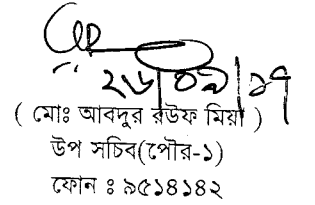 ২৬/০৯/১৭
( মোঃ আবদুর রউফ মিয়া )
উপ সচিব(পৌর-১)
ফোন ঃ ৯৫১৪১৪২